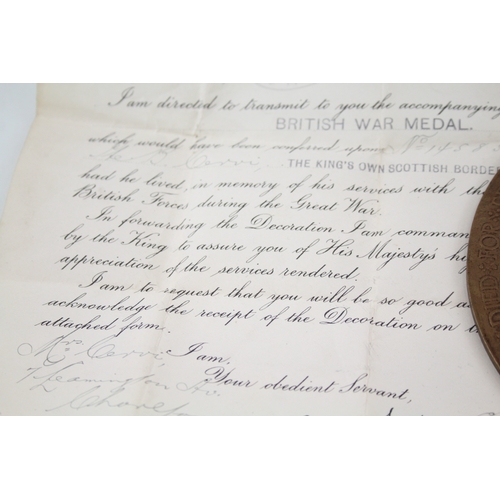 I am directed to transmit to you the accompanying
BRITISH WAR MEDAL.
which would have been conferred upon No 14583
Cervi, THE KING'S OWN SCOTTISH BORDER
had he lived, in memory of his services with the
British Forces during the Great War.
In forwarding the Decoration I am comman
by the King to assure you of His Majesty's hi
appreciation of the services rendered.
I am to request that you will be so good a
acknowledge the receipt of the Decoration on
attached form.
Mrs Cervi, I am,
Leamington
Your obedient Servant,